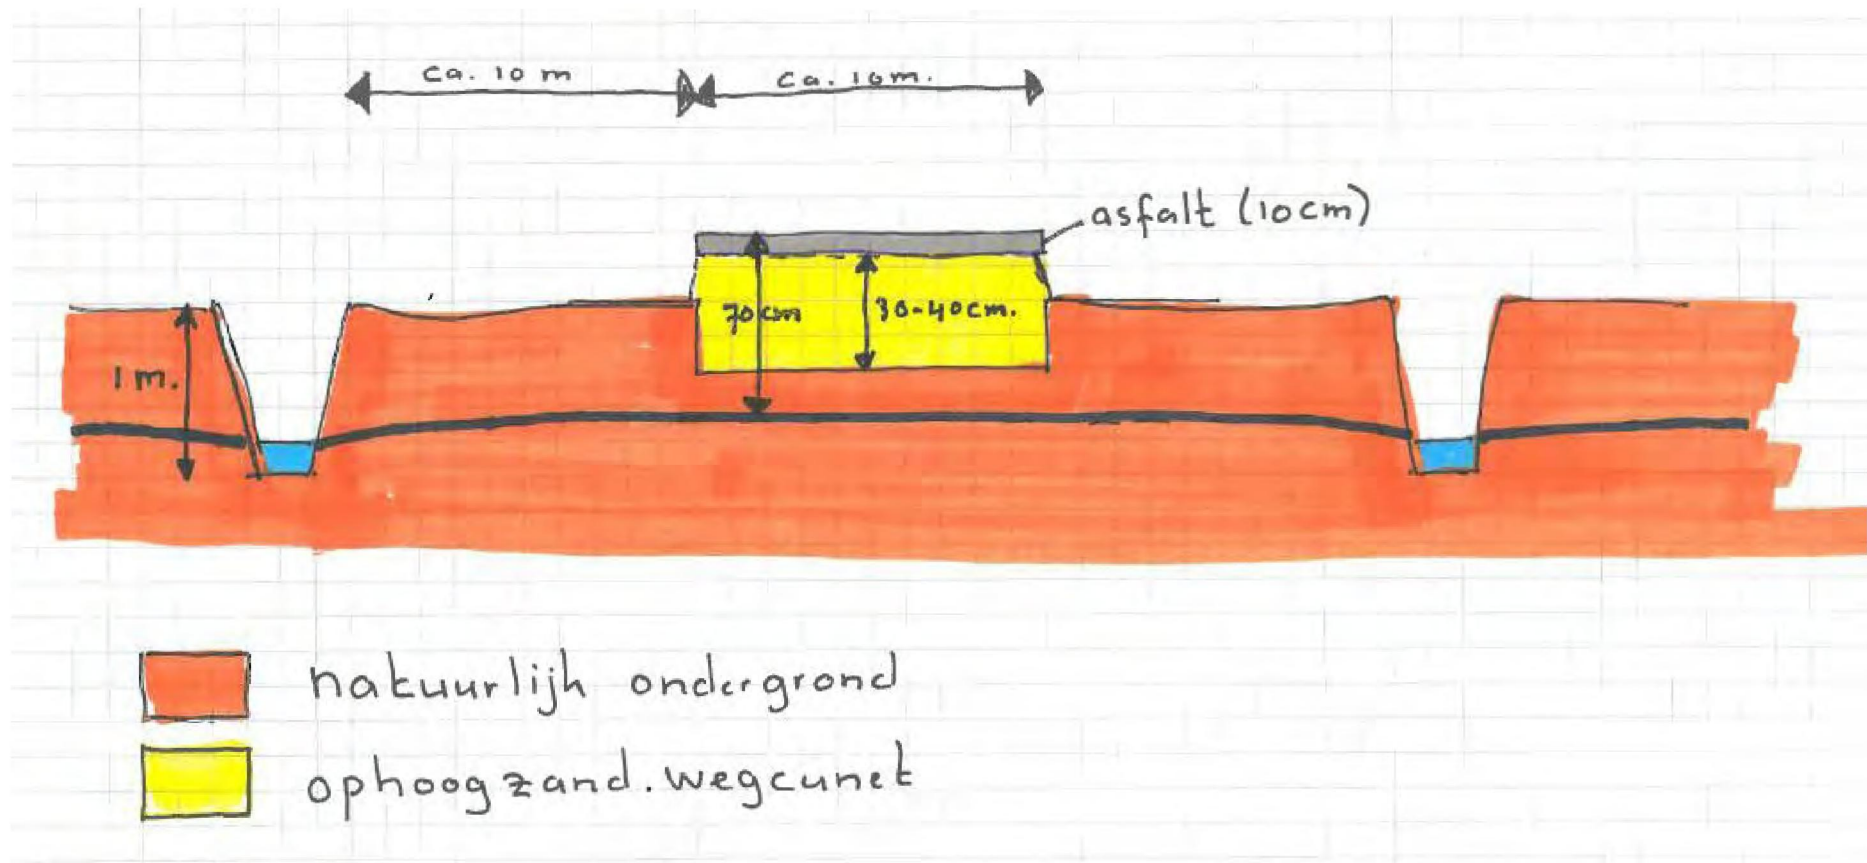 ca. 10 m
ca. 10m.
asfalt (10cm)
70cm
30-40cm.
1m.
natuurlijk ondergrond
ophoogzand.wegcunet